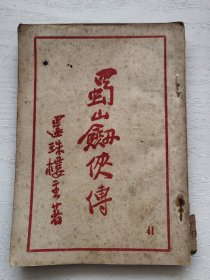 蜀山劍俠傳
還珠樓主著
41